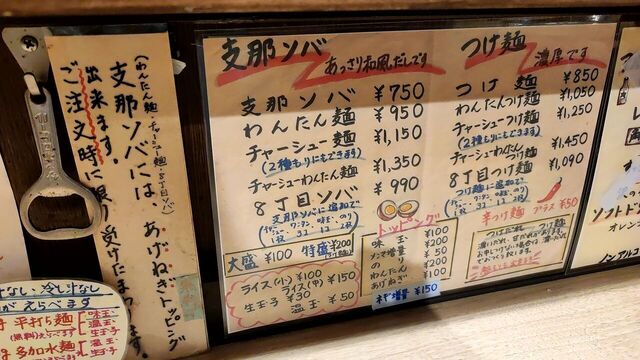 (わんたん麺・チャーシュー麺・8丁目ソバ)
支那ソバには、あげねぎトッピング
出来ます。
ご注文時に限り受けたまわります。
支那ソバ あっさり和風だしです
支那ソバ ¥750
わんたん麺 ¥950
チャーシュー麺 ¥1,150
(2種もりにもできます)
チャーシューわんたん麺 ¥1,350
8丁目ソバ ¥990
支那ソバに追加で
チャーシュー・ワンタン・味玉・のり
大盛 ¥100 特盛 ¥200
ライス(小) ¥100
ライス(中) ¥150
生玉子 ¥30
温玉 ¥50
つけ麺 濃厚です
つけ麺 ¥850
わんたんつけ麺 ¥1,050
チャーシューつけ麺 ¥1,250
(2種もりにもできます)
チャーシューわんたんつけ麺 ¥1,450
8丁目つけ麺 ¥1,090
つけ麺に追加で
辛つけ麺 プラス ¥50
トッピング
味玉 ¥100
メンマ増量 ¥200
のり ¥50
わんたん ¥200
あげねぎ ¥100
ネギ増量 ¥150
つけだれ
ソフトド
オレン
ノンアルコ
汁なし、冷し汁なし
がえらべます
平打ち麺
多加水麺
味玉
温玉
生玉子